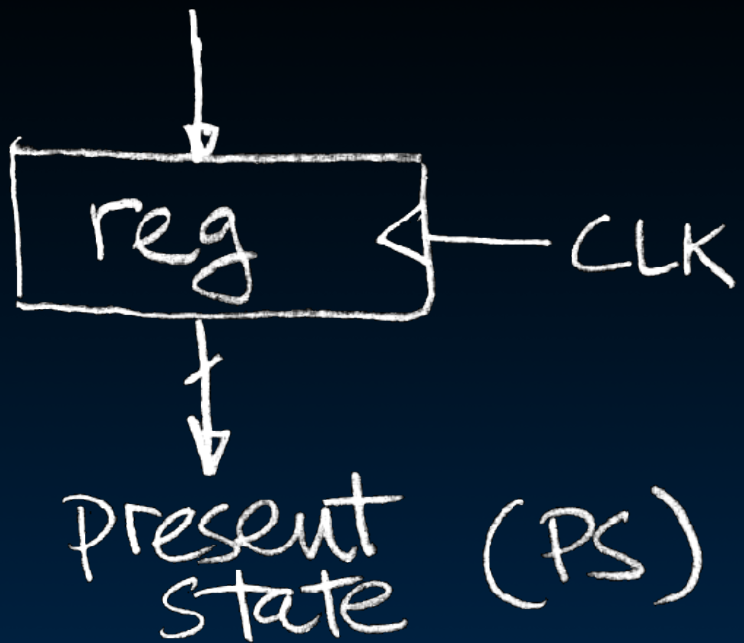 reg
CLK
present (PS)
state